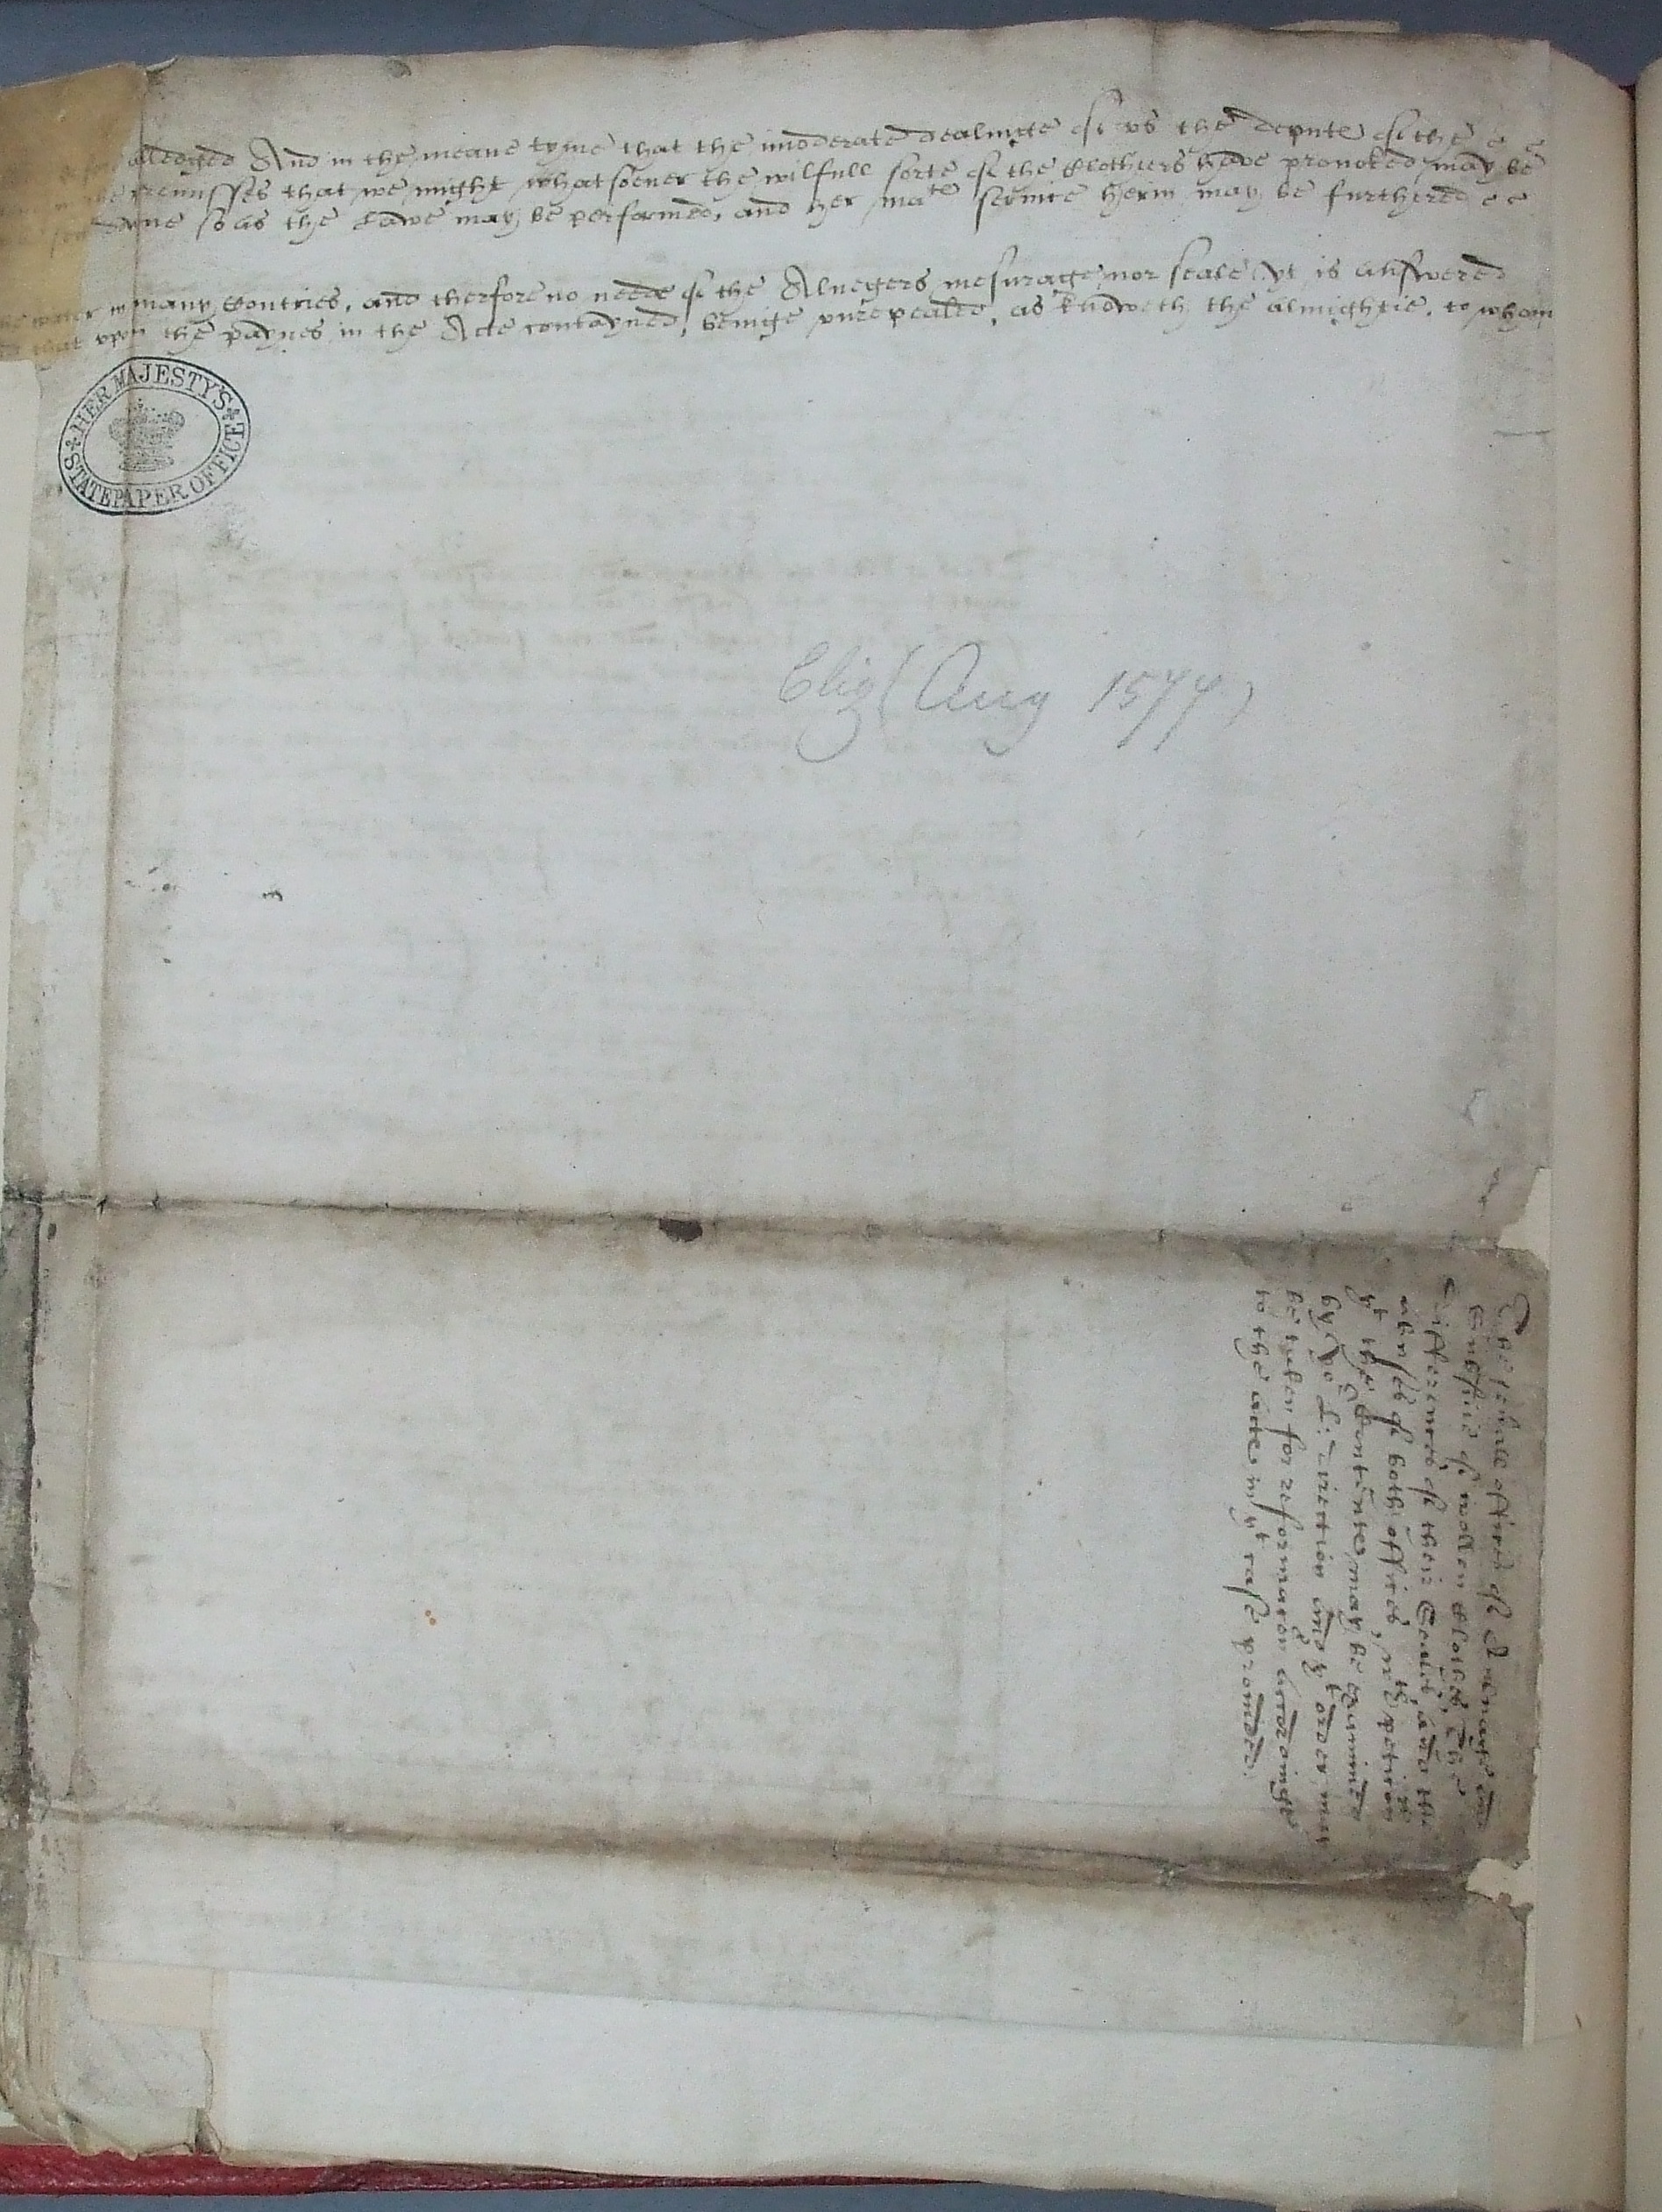 alledged And in the meane tyme that the imoderate dealinge of us the deputes of the
premisses that we might whatsoever the wilfull sorte of the Clothiers have provoked may be
done so as the Lawe may be performed, and her ma^te service herin may be furthered
water in many Contries, and therfore no nede of the Alnegers mesurage nor seale yt is answered
that upon the paynes in the Acte contayned, beinge unrepealed, as knoweth the almightie, to whom
HER MAJESTY'S STATE PAPER OFFICE
Eliz (Aug 1577)
The severall offices of Alnage and
Subsidie of wollen Clothes, The
differences of their Seales, and the
abuses of both offices, w^th peticon
y^t the Contentes may be examined
by yo^r L: direction and y^t order may
be taken for reformacon accordinge
to the acte in y^t case provided.